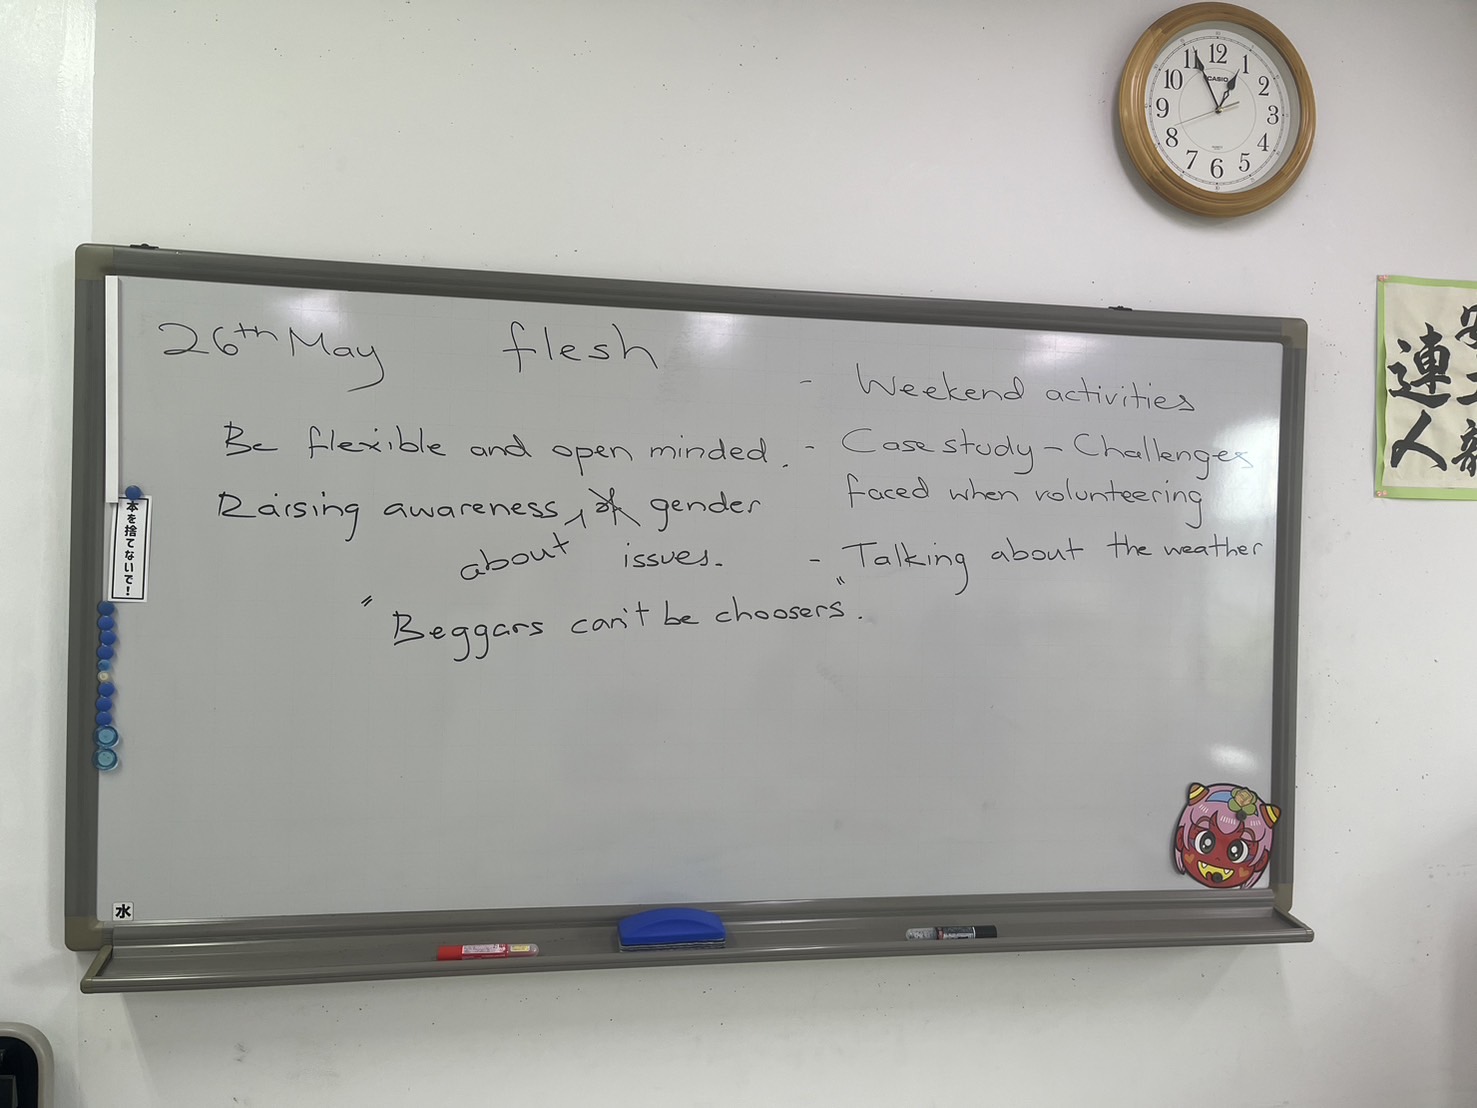 12
1
2
3
4
5
6
7
8
9
10
11
CASIO
26th May
flesh
Be flexible and open minded.
Raising awareness about gender
issues.
"Beggars can't be choosers".
- Weekend activities
- Case study - Challenges
faced when volunteering
- Talking about the weather
本を捨てないで!
水
連
人